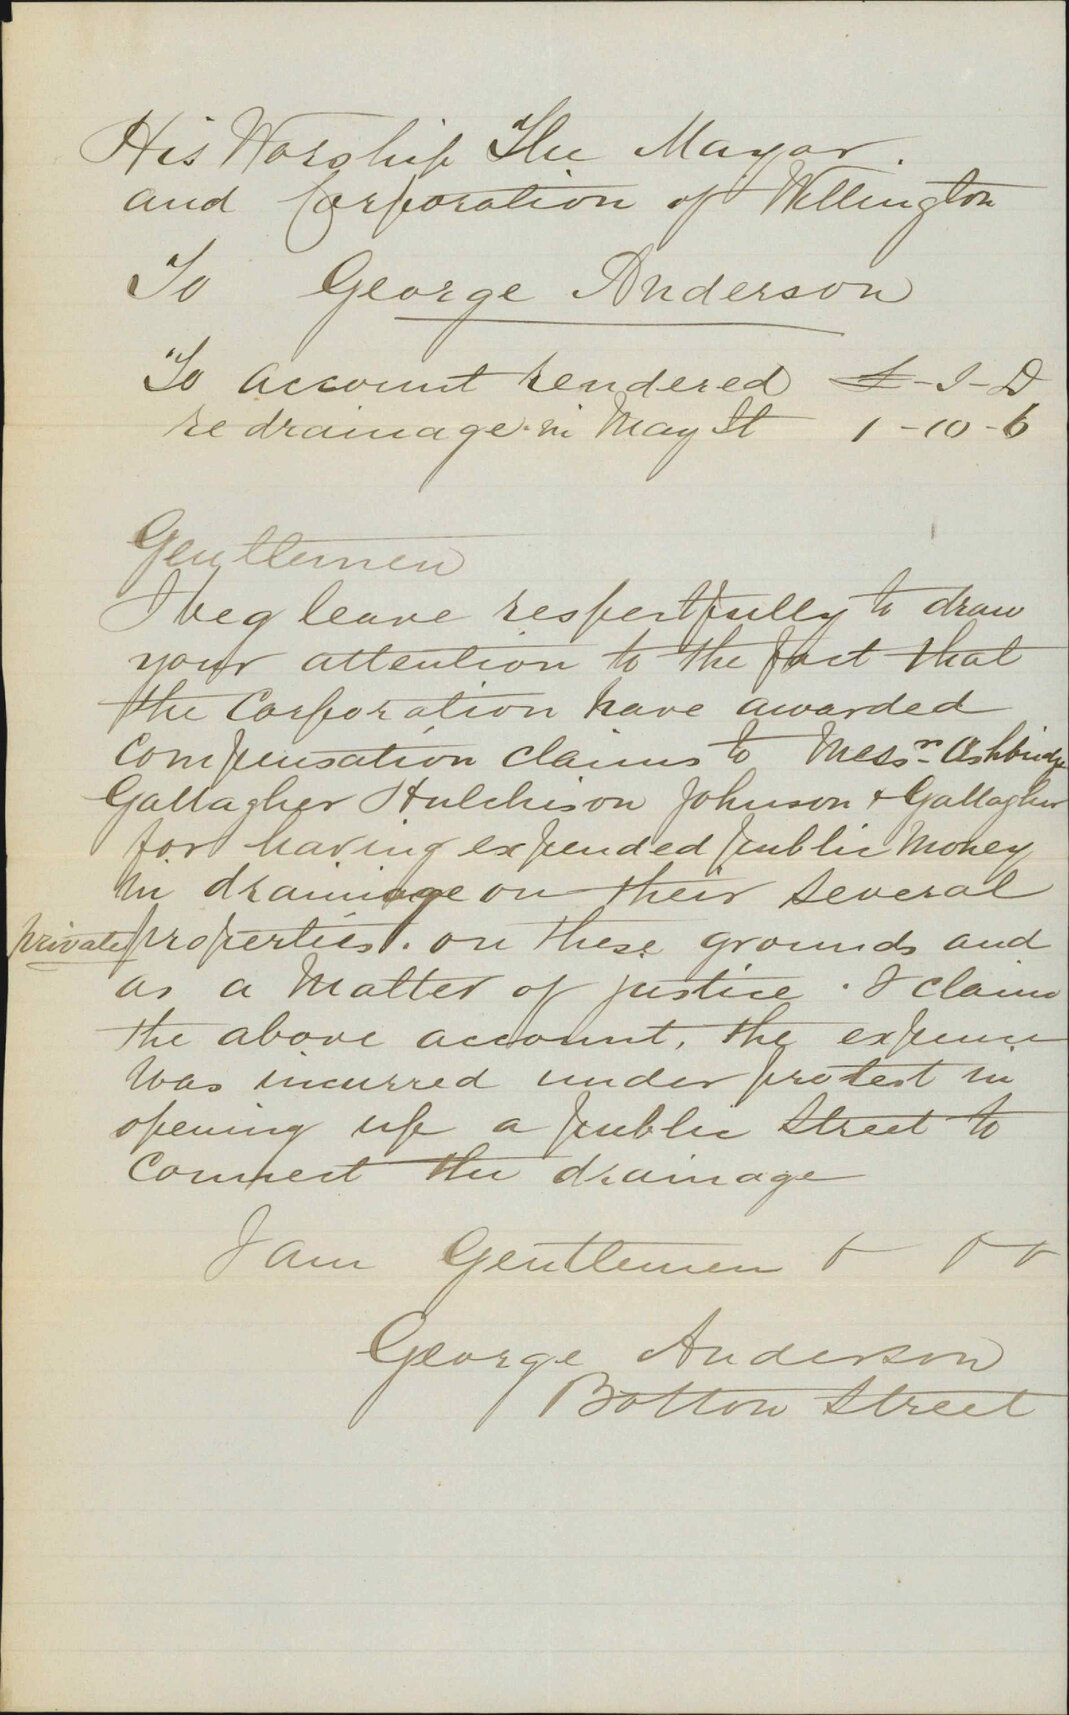 His Worship The Mayor.
and Corporation of Wellington
To George Anderson
To account rendered £-S-D
re drainage in May St 1-10-6
Gentlemen
I beg leave respectfully to draw
your attention to the fact that
the Corporation have awarded
compensation claims to Messrs Ashbridge
Gallagher Hutchison Johnson + Gallagher
for having expended public Money
in drainage on their several
private properties. on these grounds and
as a Matter of justice. I claim
the above account, the expense
Was incurred under protest in
opening up a public Street to
Connect the drainage
I am Gentlemen + + +
George Anderson
Bolton Street